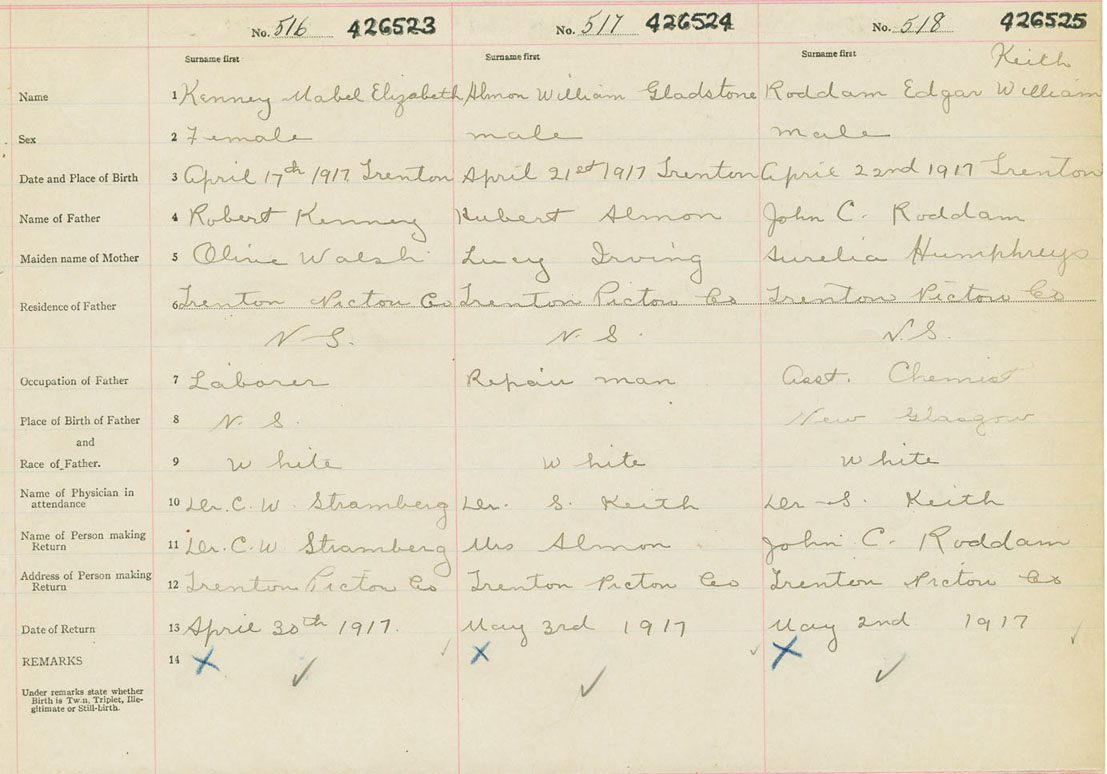 No. 516 426523 No. 517 426524 No. 518 426525
Surname first Surname first Surname first Keith
Name 1 Kenney Mabel Elizabeth Almon William Gladstone Roddam Edgar William
Sex 2 Female male male
Date and Place of Birth 3 April 17th 1917 Trenton April 21st 1917 Trenton April 22nd 1917 Trenton
Name of Father 4 Robert Kenney Hubert Almon John C. Roddam
Maiden name of Mother 5 Olive Walsh Lucy Irving Aurelia Humphreys
Residence of Father 6 Trenton Pictou Co Trenton Pictou Co Trenton Pictou Co
N.S. N.S. N.S.
Occupation of Father 7 Laborer Repair man Asst. Chemist
Place of Birth of Father 8 N.S. New Glasgow
and
Race of Father. 9 White White White
Name of Physician in
attendance 10 Dr. C. W. Stramberg Dr. S. Keith Dr S. Keith
Name of Person making
Return 11 Dr. C. W Stramberg Mrs Almon John C. Roddam
Address of Person making
Return 12 Trenton Pictou Co Trenton Pictou Co Trenton Pictou Co
Date of Return 13 April 30th 1917. May 3rd 1917 May 2nd 1917
REMARKS 14 X X X
Under remarks state whether
Birth is Twin, Triplet, Ille-
gitimate or Still-birth.